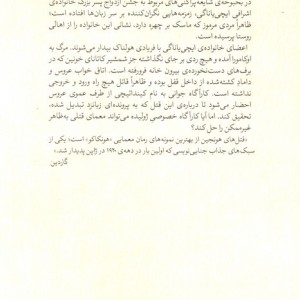 در بحبوحه‌ی شایعه‌پراکنی‌های مربوط به جشن ازدواج پسر بزرگ خانواده‌ی
اشرافی ایچی‌یاناگی، زمزمه‌هایی نگران‌کننده بر سر زبان‌ها افتاده است؛
ظاهراً مردی مرموز که ماسک بر چهره دارد، نشانی این خانواده را از اهالی
روستا پرسیده است.
اعضای خانواده‌ی ایچی‌یاناگی با فریادی هولناک بیدار می‌شوند. مرگ به
اوکامورا آمده و هیچ ردی بر جای نگذاشته جز شمشیر کاتانای خونین که در
برف‌های دست‌نخورده‌ی بیرون خانه فرورفته است. اتاق خواب عروس و
داماد کشته‌شده از داخل قفل بوده و ظاهراً قاتل هیچ راه ورود و خروجی
نداشته است. کارآگاه جوانی به نام کیندائیچی از طرف عموی عروس
احضار می‌شود تا درباره‌ی این قتل که به پرونده‌ای زبانزد تبدیل شده،
تحقیق کند. اما آیا کارآگاه خصوصی ژولیده می‌تواند معمای قتلی به‌ظاهر
غیرممکن را حل کند؟
«قتل‌های هونجین از بهترین نمونه‌های رمان معمایی «هونکاکو» است؛ یکی از
سبک‌های جذاب جنایی‌نویسی که اولین بار در دهه‌ی ۱۹۲۰ در ژاپن پدیدار شد.»
گاردین